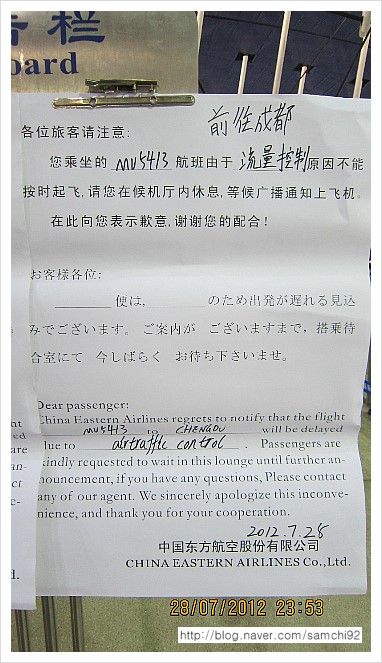 告栏
oard
前往成都
各位旅客请注意:
您乘坐的 MU5413 航班由于 流量控制 原因不能
按时起飞,请您在候机厅内休息,等候广播通知上飞机。
在此向您表示歉意,谢谢您的配合!
お客様各位:
便は, のため出発が遅れる見込
みでございます。ご案内が ございますまで,搭乗待
合室にて 今しばらく お待ち下さいませ。
Dear passenger:
China Eastern Airlines regrets to notify that the flight
MU5413 to CHENGDU will be delayed
due to airtraffic control. Passengers are
kindly requested to wait in this lounge until further an-
nouncement, if you have any questions, Please contact
any of our agent. We sincerely apologize this inconve-
nience, and thank you for your cooperation.
2012.7.28
中国东方航空股份有限公司
CHINA EASTERN AIRLINES Co., Ltd.
28/07/2012 23:53
http://blog.naver.com/samchi92